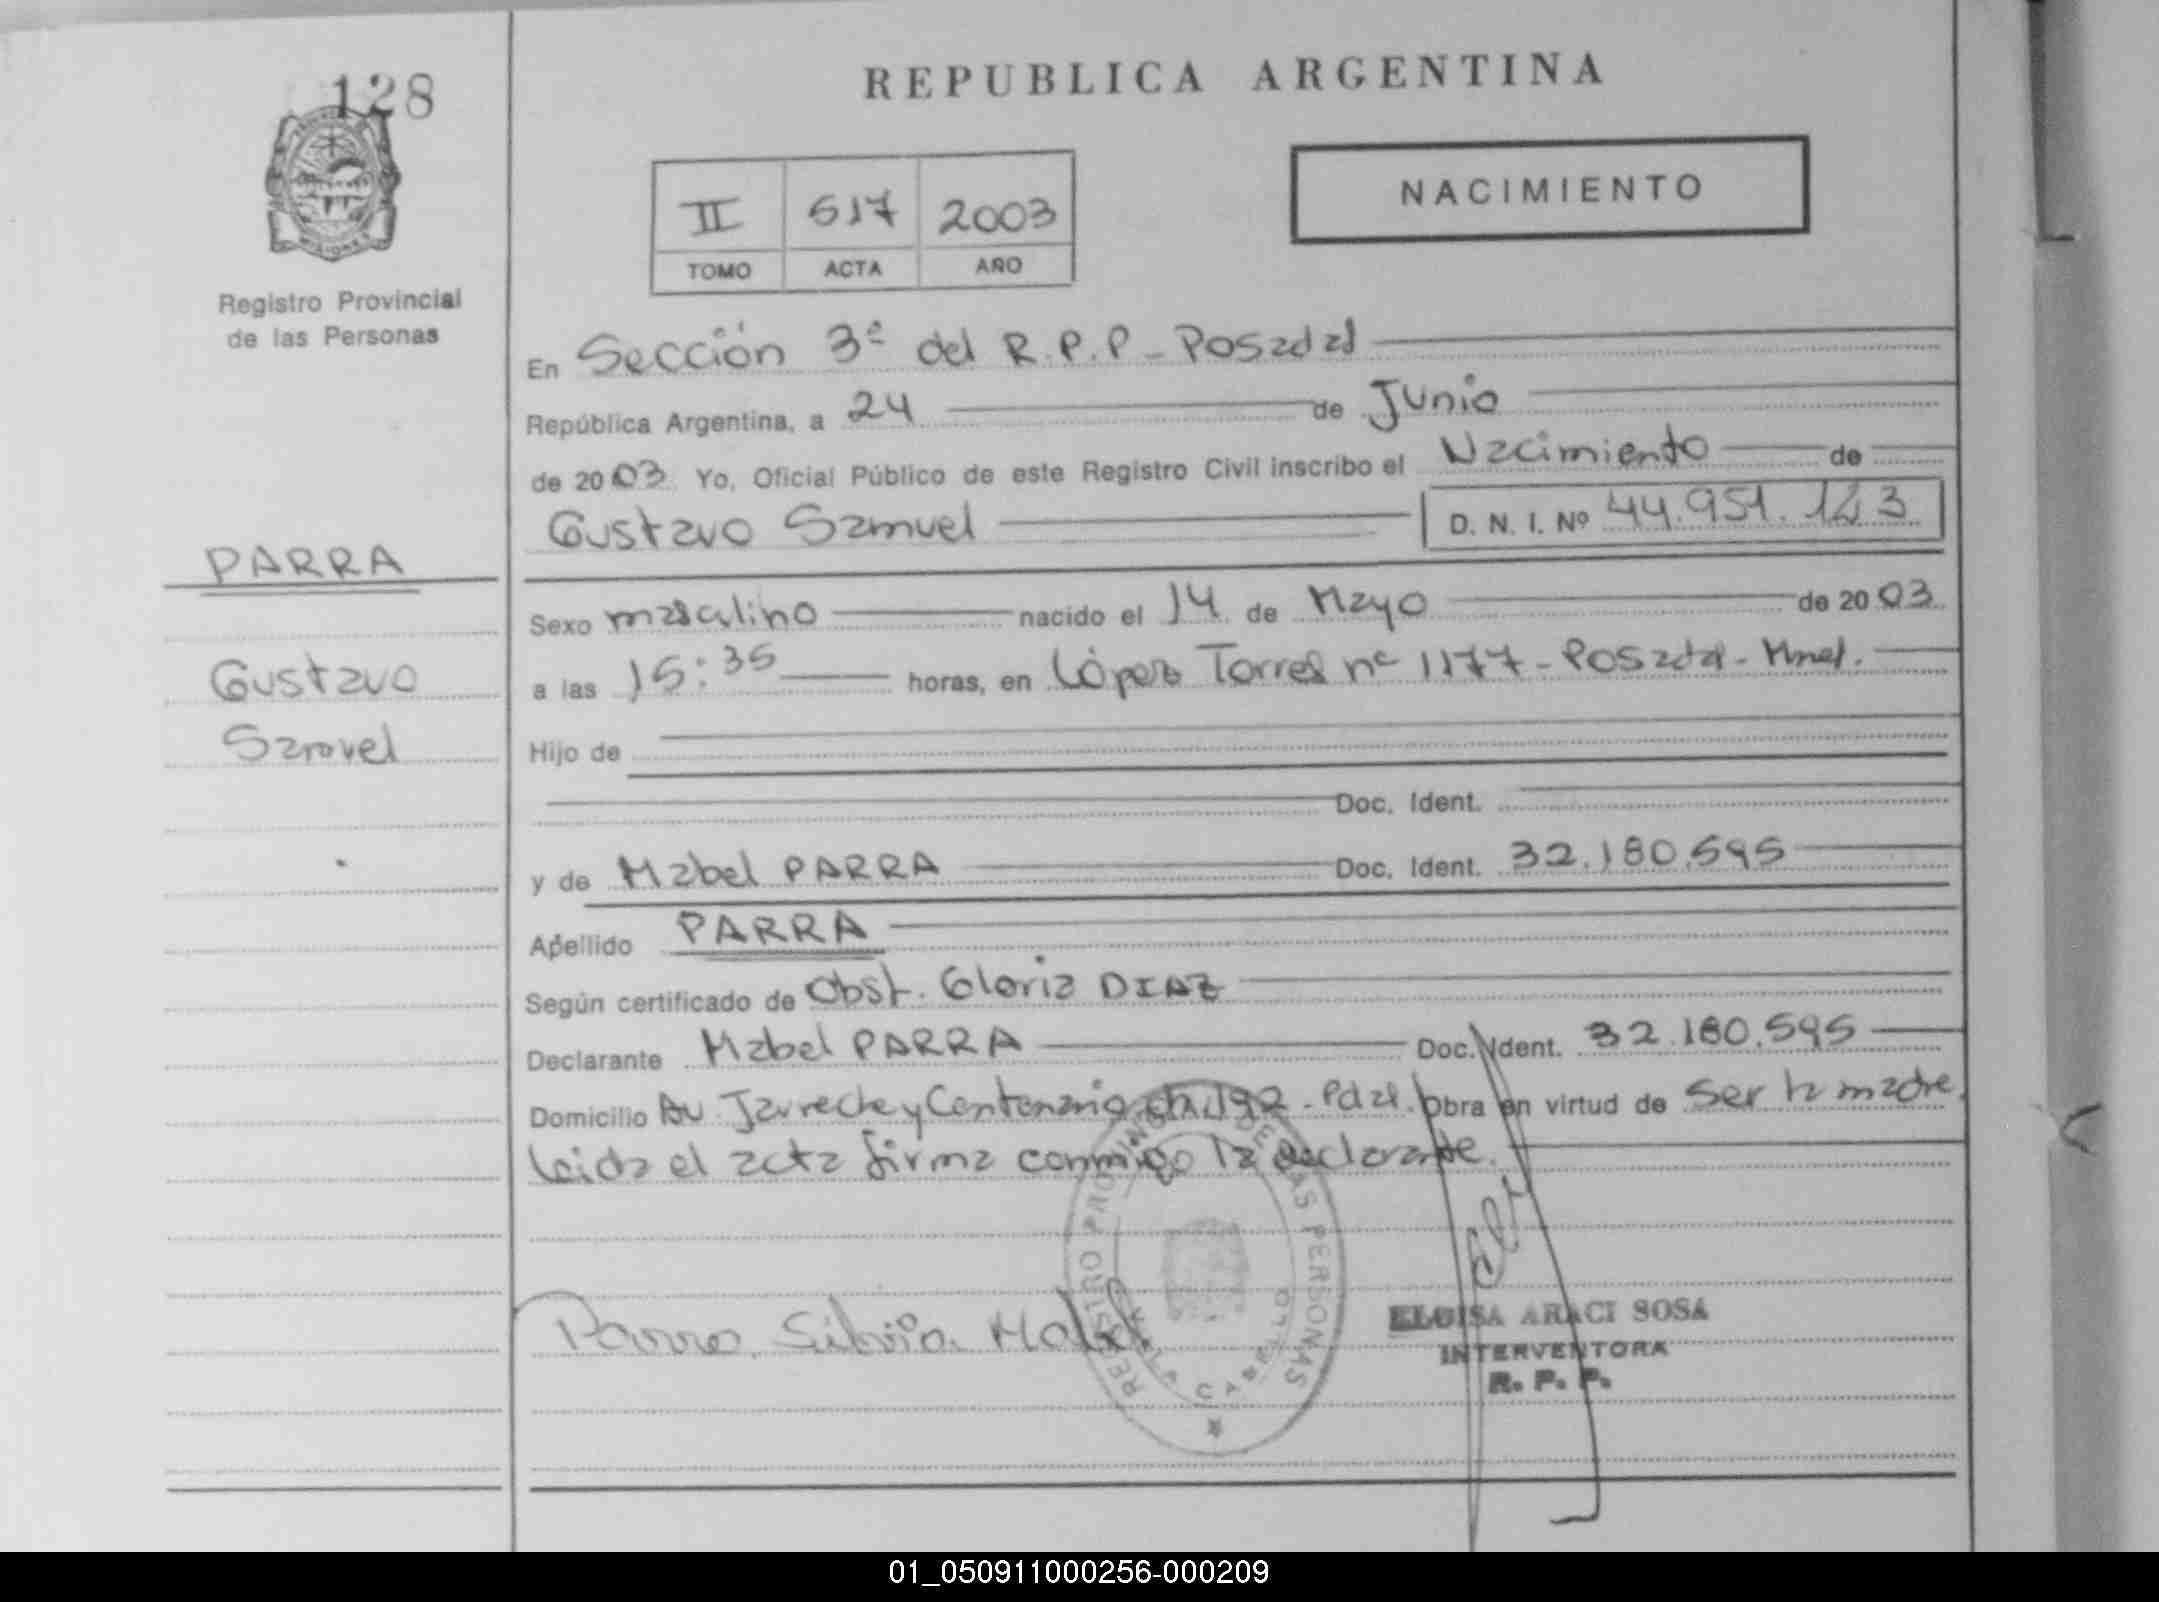 128
REPUBLICA ARGENTINA
NACIMIENTO
II 517 2003
TOMO ACTA AÑO
Registro Provincial
de las Personas
En Sección 3ª del R.P.P - Posadas
República Argentina, a 24 de Junio
de 2003 Yo, Oficial Público de este Registro Civil inscribo el Nacimiento de
Gustavo Samuel D. N. I. Nº 44.951.123
PARRA
Sexo masculino nacido el 14 de Mayo de 2003
Gustavo
Samuel
a las 15:35 horas, en López Torres nº 1177 - Posadas - Mnes.
Hijo de
Doc. Ident.
y de Mabel PARRA Doc. Ident. 32.180.595
Apellido PARRA
Según certificado de Obst. Gloria DIAZ
Declarante Mabel PARRA Doc. Ident. 32.180.595
Domicilio Av. Jaureche y Centenario ch. 192 - Pdas. Obra en virtud de ser la madre.
Leida el acta firma conmigo la declarante.
Parra Silvia Mabel
REGISTRO PROVINCIAL DE LAS PERSONAS
ELOISA ARACI SOSA
INTERVENTORA
R. P. P.
01_050911000256-000209